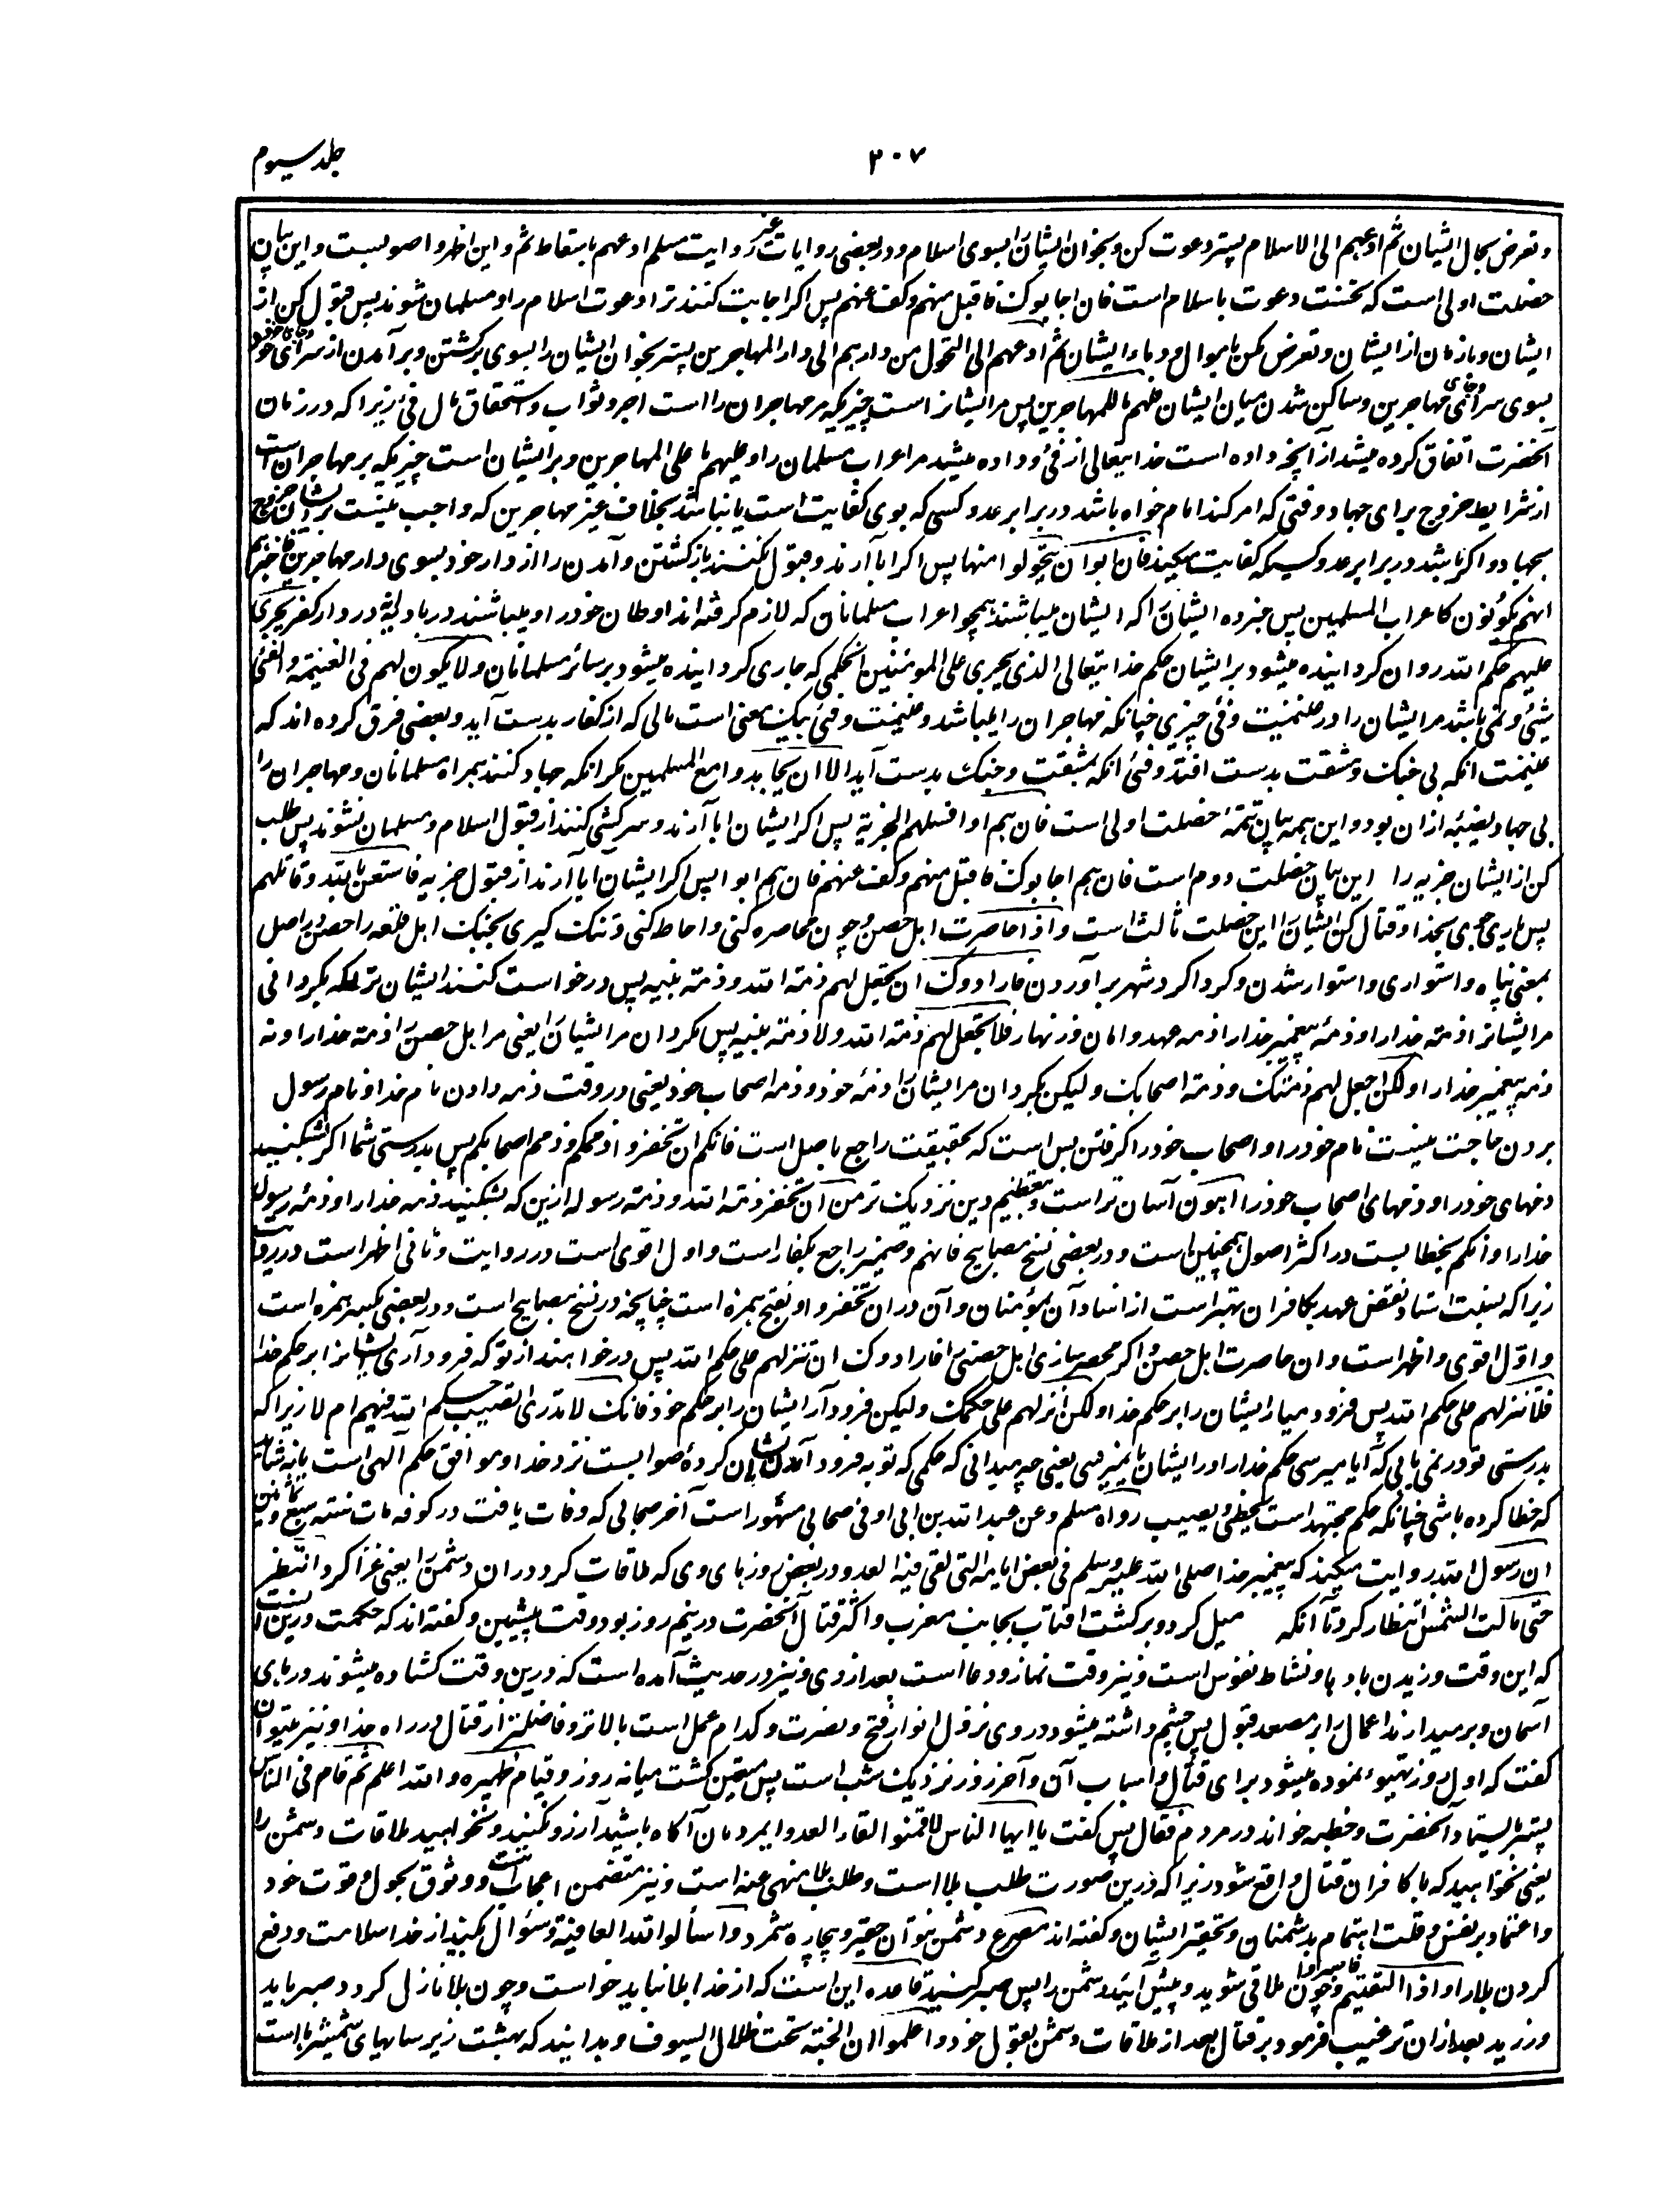 جلد سیوم
۲۰۷
وتعرض بحال ایشان ثم ادعهم الی الاسلام پستر دعوت کن و بخوان ایشان را بسوی اسلام و در بعضی روایات غیر روایت مسلم ادعهم باسقاط ثم و این اظهر و اصوبست و این بیان
خصلت اولی است که نخست دعوت باسلام است فان اجابوک فاقبل منهم وکف عنهم پس اگر اجابت کنند ترا دعوت اسلام را و مسلمان شوند پس قبول کن از
ایشان و باز مان از ایشان و تعرض مکن باموال و دماء ایشان ثم ادعهم الی التحول من دارهم الی دار المهاجرین پستر بخوان ایشان را بسوی برگشتن و برآمدن از سرای خود
بسوی سرای مهاجرین و ساکن شدن میان ایشان فلهم ما للمهاجرین پس مر ایشانرا است چیزیکه مر مهاجران را است اجر و ثواب و استحقاق مال فئ زیرا که در زمان
آنحضرت انفاق کرده میشد از آنچه داده است خدایتعالی از فئ و داده میشد مر اعراب مسلمان را وعلیهم ما علی المهاجرین و بر ایشان است چیزیکه بر مهاجران است
از شرایط خروج برای جهاد وقتی که امر کند امام خواه باشد در برابر عدو کسی که بوی کفایت است یا نباشد بخلاف غیر مهاجرین که واجب نیست بر ایشان خروج
بجهاد و اگر باشد در برابر عدو کسیکه کفایت میکند فان ابوا ان یتحولوا منها پس اگر ابا آرند و قبول نکنند باز گشتن و آمدن را از دار خود بسوی دار مهاجرین فاخبرهم
انهم یکونون کاعراب المسلمین پس خبر ده ایشان را که ایشان میباشند همچو اعراب مسلمانان که لازم گرفته اند اوطان خود را و میباشند در بادیه نه در دار کفر یجری
علیهم حکم الله روان گردانیده میشود بر ایشان حکم خدایتعالی الذی یجری علی المؤمنین آن حکمی که جاری گردانیده میشود بر سائر مسلمانان ولا یکون لهم فی الغنیمة والفئ
شیٔ و نمی باشد مر ایشان را در غنیمت و فئ چیزی چنانکه مهاجران را میباشد و غنیمت و فئ بیک معنی است مالی که از کفار بدست آید و بعضی فرق کرده اند که
غنیمت آنکه بی جنک و مشقت بدست افتد و فئ آنکه بمشقت و جنک بدست آید الا ان یجاهدوا مع المسلمین مگر آنکه جهاد کنند همراه مسلمانان و مهاجران را
بی جهاد نصیبه ازان بود و این همه بیان تتمه خصلت اولی است فان هم ابوا فسلهم الجزیة پس اگر ایشان ابا آرند و سرکشی کنند از قبول اسلام و مسلمان نشوند پس طلب
کن از ایشان جزیه را این بیان خصلت دوم است فان هم اجابوک فاقبل منهم وکف عنهم فان هم ابوا پس اگر ایشان ابا آرند از قبول جزیه فاستعن بالله وقاتلهم
پس یاری جوی بخدا و قتال کن ایشان را این خصلت ثالث است واذا حاصرت اهل حصن و چون محاصره کنی و احاطه کنی و تنک گیری بجنک اهل قلعه را حصن در اصل
بمعنی پناه و استواری و استوار شدن و گرداگرد شهر برآوردن فارادوک ان تجعل لهم ذمة الله وذمة نبیه پس درخواست کنند ایشان ترا که بگردانی
مر ایشانرا ذمه خدا را و ذمه پیغمبر خدا را ذمه عهد و امان و زنهار فلا تجعل لهم ذمة الله ولا ذمة نبیه پس مگردان مر ایشان را یعنی مر اهل حصن را ذمه خدا را و نه
ذمه پیغمبر خدا را ولکن اجعل لهم ذمتک وذمة اصحابک ولیکن بگردان مر ایشان را ذمه خود و ذمه اصحاب خود یعنی در وقت ذمه دادن نام خدا و نام رسول
بردن حاجت نیست نام خود را و اصحاب خود را گرفتن بس است که بحقیقت راجع باصل است فانکم ان تخفروا ذممکم وذمم اصحابکم پس بدرستی شما اگر بشکنید
ذمهای خود را و ذمهای اصحاب خود را اهون آسان تر است و بتعظیم دین نزدیک تر من ان تخفروا ذمة الله وذمة رسوله ازین که بشکنید ذمه خدا را و ذمه رسول
خدا را وانکم بخطابست در اکثر اصول همچنین است و در بعضی نسخ مصابیح فانهم و ضمیر راجع بکفار است و اول اقوی است در روایت و ثانی اظهر است در درایت
زیرا که نسبت اسناد نقض عهد بکافران بهتر است از اسناد آن بمؤمنان و آن در ان تخفروا و بفتح همزه است چنانچه در نسخ مصابیح است و در بعضی بکسر همزه است
و اول اقوی و اظهر است وان حاصرت اهل حصن و اگر محصر سازی اهل حصنی را فارادوک ان تنزلهم علی حکم الله پس درخواهند از تو که فرود آری ایشانرا بر حکم خدا
فلا تنزلهم علی حکم الله پس فرود میار ایشان را بر حکم خدا ولکن انزلهم علی حکمک ولیکن فرود آر ایشان را بر حکم خود فانک لا تدری اتصیب حکم الله فیهم ام لا زیرا که
بدرستی تو در نمی یابی که آیا میرسی حکم خدا را در ایشان یا نمیرسی یعنی چه میدانی که حکمی که تو به فرود آمدن ایشان کردهٔ صوابست نزد خدا و موافق حکم الهی است یا نه شاید
که خطا کرده باشی چنانکه حکم مجتهد است یخطئ ویصیب رواه مسلم وعن عبد الله بن ابی اوفی صحابی مشهور است آخر صحابی که وفات یافت در کوفه مات سنة سبع وثمانین
ان رسول الله روایت میکند که پیغمبر خدا صلی الله علیه وسلم فی بعض ایامه التی لقی فیها العدو در بعض روزهای وی که ملاقات کرد دران دشمن را یعنی غزا کرد انتظر
حتی مالت الشمس انتظار کرد تا آنکه میل کرد و برگشت آفتاب بجانب مغرب و اکثر قتال آنحضرت در نیم روز بود وقت پیشین و گفته اند که حکمت درین آنست
که این وقت وزیدن بادها و نشاط نفوس است و نیز وقت نماز و دعا است بعد از وی و نیز در حدیث آمده است که درین وقت کشاده میشوند درهای
آسمان و برمیدارند اعمال را بر مصعد قبول پس چشم داشته میشود در وی نزول انوار فتح و نصرت و کدام عمل است بالاتر و فاضلتر از قتال در راه خدا و نیز میتوان
گفت که اول روز تهیؤ نموده میشود برای قتال و اسباب آن و آخر روز نزدیک شب است پس متعین گشت میانه روز و قیام ظهیره والله اعلم ثم قام فی الناس
پستر بایستاد آنحضرت و خطبه خواند در مردم فقال پس گفت یا ایها الناس لا تتمنوا لقاء العدو ای مردمان آگاه باشید آرزو مکنید و نخواهید ملاقات دشمن را
یعنی نخواهید که با کافران قتال واقع شود زیرا که درین صورت طلب بلا است و طلب بلا منهی عنه است و نیز متضمن اعجاب است و وثوق بحول و قوت خود
و اعتماد بر نفس و قلت اهتمام بدشمنان و تحقیر ایشان و گفته اند مصرع دشمن نتوان حقیر و بیچاره شمرد واسألوا الله العافیة و سؤال بکنید از خدا سلامت و دفع
کردن بلا را واذا لقیتم فاصبروا و چون ملاقی شوید و پیش آئید دشمن را پس صبر کنید قاعده این است که از خدا بلا نباید خواست و چون بلا نازل گردد صبر باید
ورزید بعد ازان ترغیب فرمود بر قتال بعد از ملاقات دشمن بقول خود واعلموا ان الجنة تحت ظلال السیوف و بدانید که بهشت زیر سایهای شمشیرها است